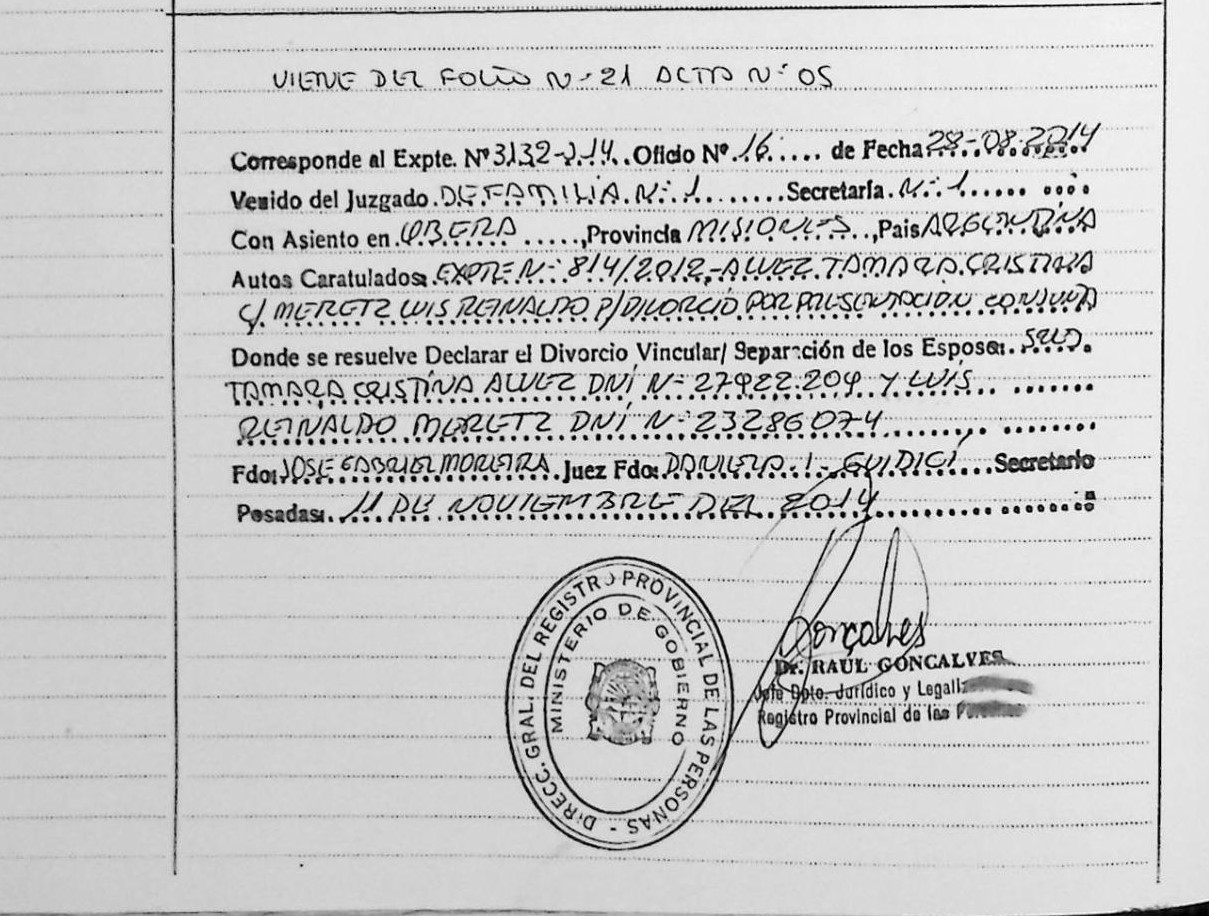 VIENE DEL FOLIO N-21 ACTA N-05
Corresponde al Expte. Nº 3132-J-14. Oficio Nº 16 de Fecha 28-08-2014
Venido del Juzgado DE FAMILIA N-1 Secretaría N-1
Con Asiento en OBERA, Provincia MISIONES, Pais ARGENTINA
Autos Caratulados: EXPTE N-814/2012-ALVEZ TAMARA CRISTINA
C/ MERETZ LUIS REINALDO P/DIVORCIO POR PRESENTACIÓN CONJUNTA
Donde se resuelve Declarar el Divorcio Vincular/ Separación de los Esposos:
TAMARA CRISTINA ALVEZ DNI N-27922.204 Y LUIS
REINALDO MERETZ DNI N-23286074
Fdo: JOSE GABRIEL MOREIRA. Juez Fdo: DANIELA-I-GUIDICI Secretario
Posadas: 11 DE NOVIEMBRE DEL 2014
DIRECC. GRAL. DEL REGISTRO PROVINCIAL DE LAS PERSONAS -
MINISTERIO DE GOBIERNO
Goncalves
Dr. RAUL GONCALVES
Jefe Dpto. Jurídico y Legali
Registro Provincial de las